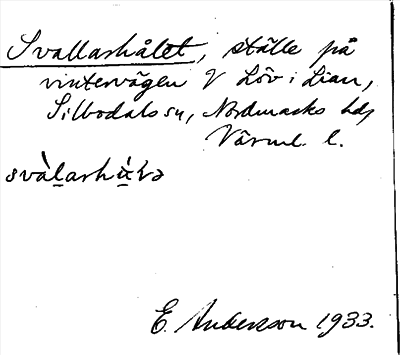 Svallarhålet, ställe på
vintervägen V Löv i Lian,
Silbodals sn, Nordmarks hd,
Värml. l.
E. Andersson 1933.